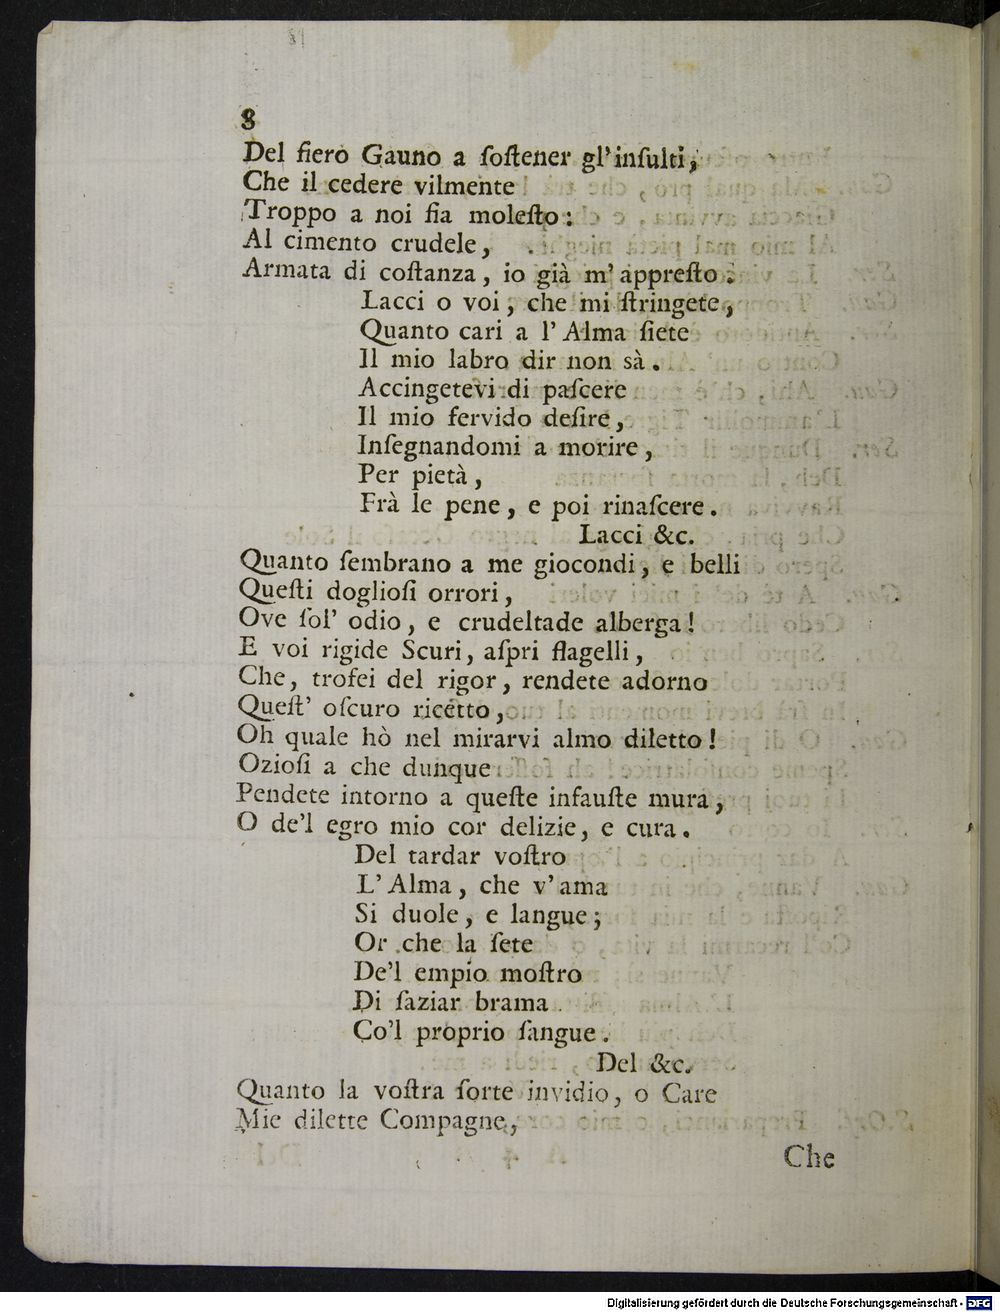 8
Del fiero Gauno a ſoſtener gl'inſulti,
Che il cedere vilmente
Troppo a noi fia moleſto:
Al cimento crudele,
Armata di coſtanza, io già m' appreſto.
Lacci o voi, che mi ſtringete,
Quanto cari a l' Alma ſiete
Il mio labro dir non sà.
Accingetevi di paſcere
Il mio fervido deſire,
Inſegnandomi a morire,
Per pietà,
Frà le pene, e poi rinaſcere.
Lacci &c.
Quanto ſembrano a me giocondi, e belli
Queſti doglioſi orrori,
Ove ſol' odio, e crudeltade alberga!
E voi rigide Scuri, aſpri flagelli,
Che, trofei del rigor, rendete adorno
Queſt' oſcuro ricetto,
Oh quale hò nel mirarvi almo diletto!
Ozioſi a che dunque
Pendete intorno a queſte infauſte mura,
O de'l egro mio cor delizie, e cura.
Del tardar voſtro
L' Alma, che v' ama
Si duole, e langue;
Or che la ſete
De'l empio moſtro
Di ſaziar brama
Co'l proprio ſangue.
Del &c.
Quanto la voſtra ſorte invidio, o Care
Mie dilette Compagne,
Che
Digitalisierung gefördert durch die Deutsche Forschungsgemeinschaft - DFG